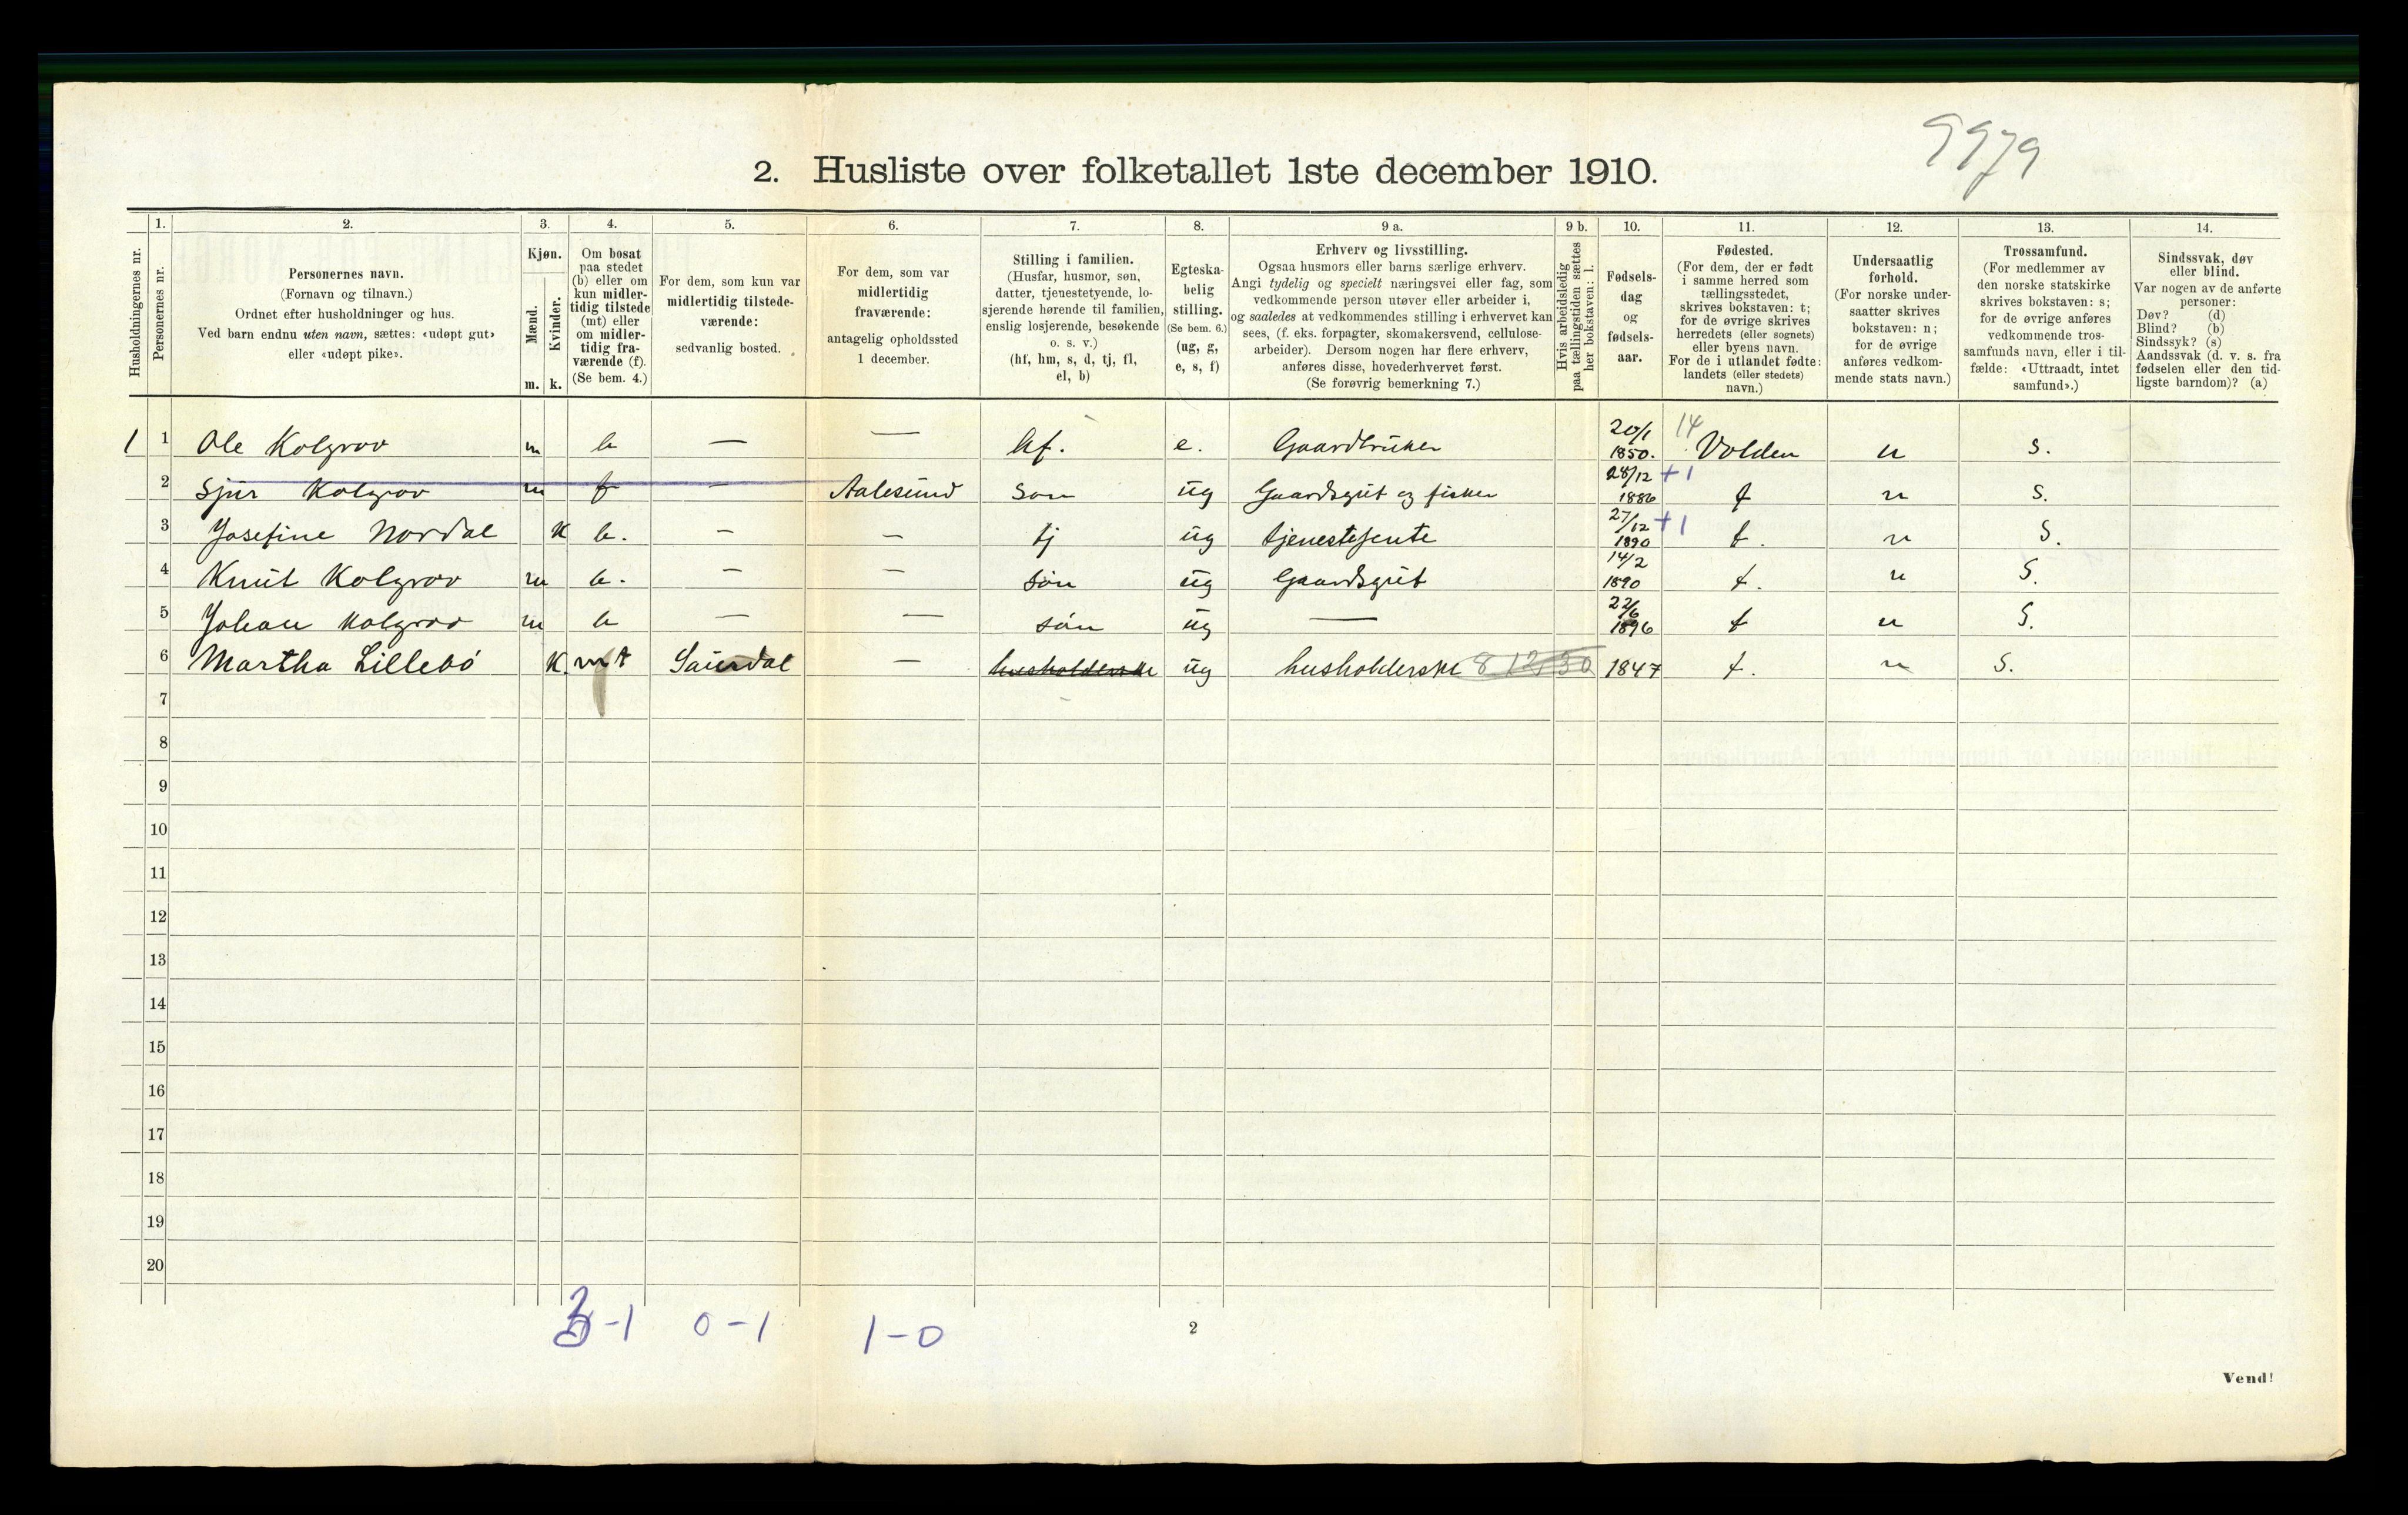 9979
2. Husliste over folketallet 1ste december 1910.
Husholdningernes nr.
1.
Personernes nr.
2.
Personernes navn.
(Fornavn og tilnavn.)
Ordnet efter husholdninger og hus.
Ved barn endnu uten navn, sættes: «udøpt gut»
eller «udøpt pike».
3.
Kjøn.
Mænd.
Kvinder.
m. k.
4.
Om bosat
paa stedet
(b) eller om
kun midler-
tidig tilstede
(mt) eller
om midler-
tidig fra-
værende (f).
(Se bem. 4.)
5.
For dem, som kun var
midlertidig tilstede-
værende:
sedvanlig bosted.
6.
For dem, som var
midlertidig
fraværende:
antagelig opholdssted
1 december.
7.
Stilling i familien.
(Husfar, husmor, søn,
datter, tjenestetyende, lo-
sjerende hørende til familien,
enslig losjerende, besøkende
o. s. v.)
(hf, hm, s, d, tj, fl,
el, b)
8.
Egteska-
belig
stilling.
(Se bem. 6.)
(ug, g,
e, s, f)
9 a.
Erhverv og livsstilling.
Ogsaa husmors eller barns særlige erhverv.
Angi tydelig og specielt næringsvei eller fag, som
vedkommende person utøver eller arbeider i,
og saaledes at vedkommendes stilling i erhvervet kan
sees, (f. eks. forpagter, skomakersvend, cellulose-
arbeider). Dersom nogen har flere erhverv,
anføres disse, hovederhvervet først.
(Se forøvrig bemerkning 7.)
9 b.
Hvis arbeidsledig
paa tællingstiden sættes
her bokstaven: l.
10.
Fødsels-
dag
og
fødsels-
aar.
11.
Fødested.
(For dem, der er født
i samme herred som
tællingsstedet,
skrives bokstaven: t;
for de øvrige skrives
herredets (eller sognets)
eller byens navn.
For de i utlandet fødte:
landets (eller stedets)
navn.)
12.
Undersaatlig
forhold.
(For norske under-
saatter skrives
bokstaven: n;
for de øvrige
anføres vedkom-
mende stats navn.)
13.
Trossamfund.
(For medlemmer av
den norske statskirke
skrives bokstaven: s;
for de øvrige anføres
vedkommende tros-
samfunds navn, eller i til-
fælde: «Uttraadt, intet
samfund».)
14.
Sindssvak, døv
eller blind.
Var nogen av de anførte
personer:
Døv? (d)
Blind? (b)
Sindssyk? (s)
Aandssvak (d. v. s. fra
fødselen eller den tid-
ligste barndom)? (a)
1 1 Ole Kolgrov m b — — hf. e. Gaardbruker 20/1 1850. 14 Volden n S.
2 Sjur Kolgrov m f - Aalesund Søn ug Gaardsgut og fisker 28/12 1886 +1 t n S.
3 Josefine Nordal K b. - - tj ug tjenestejente 27/12 1890 +1 t. n S.
4 Knut Kolgrov m b. - - søn ug Gaardsgut 14/2 1890 t. n S.
5 Johan Kolgrov m b — — søn ug — 22/6 1896 t n S.
6 Martha Lillebö K. mt Saurdal — husholderske ug husholderske 8 12.30 1847 t. n S.
7
8
9
10
11
12
13
14
15
16
17
18
19
20
3-1 0-1 1-0
2
Vend!